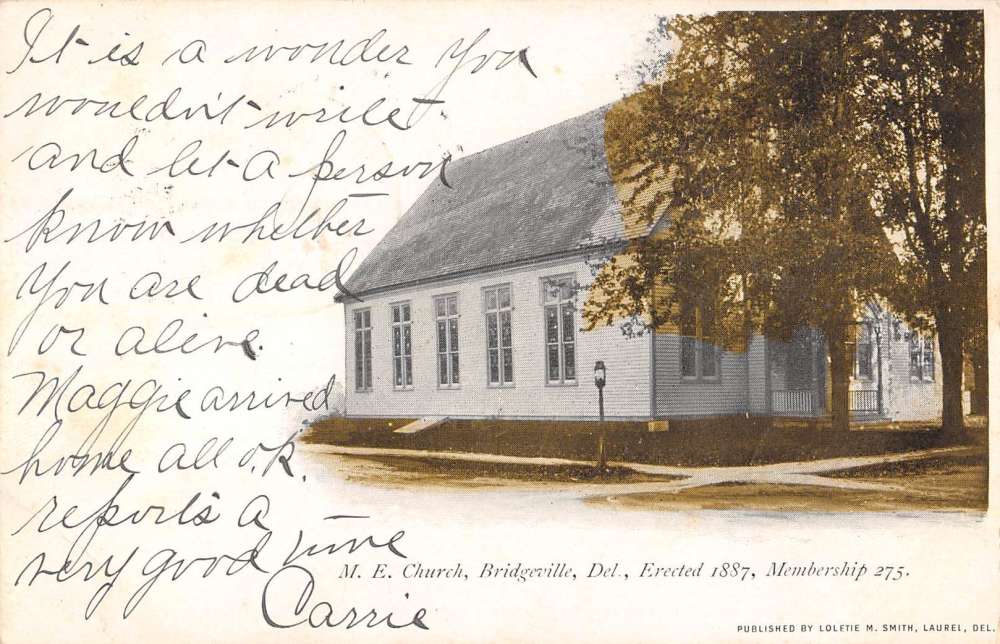 It is a wonder you
wouldn't write
and let a person
know whether
you are dead
or alive.
Maggie arrived
home all o.k.
reports a
very good time
Carrie
M. E. Church, Bridgeville, Del., Erected 1887, Membership 275.
PUBLISHED BY LOLETIE M. SMITH, LAUREL, DEL.